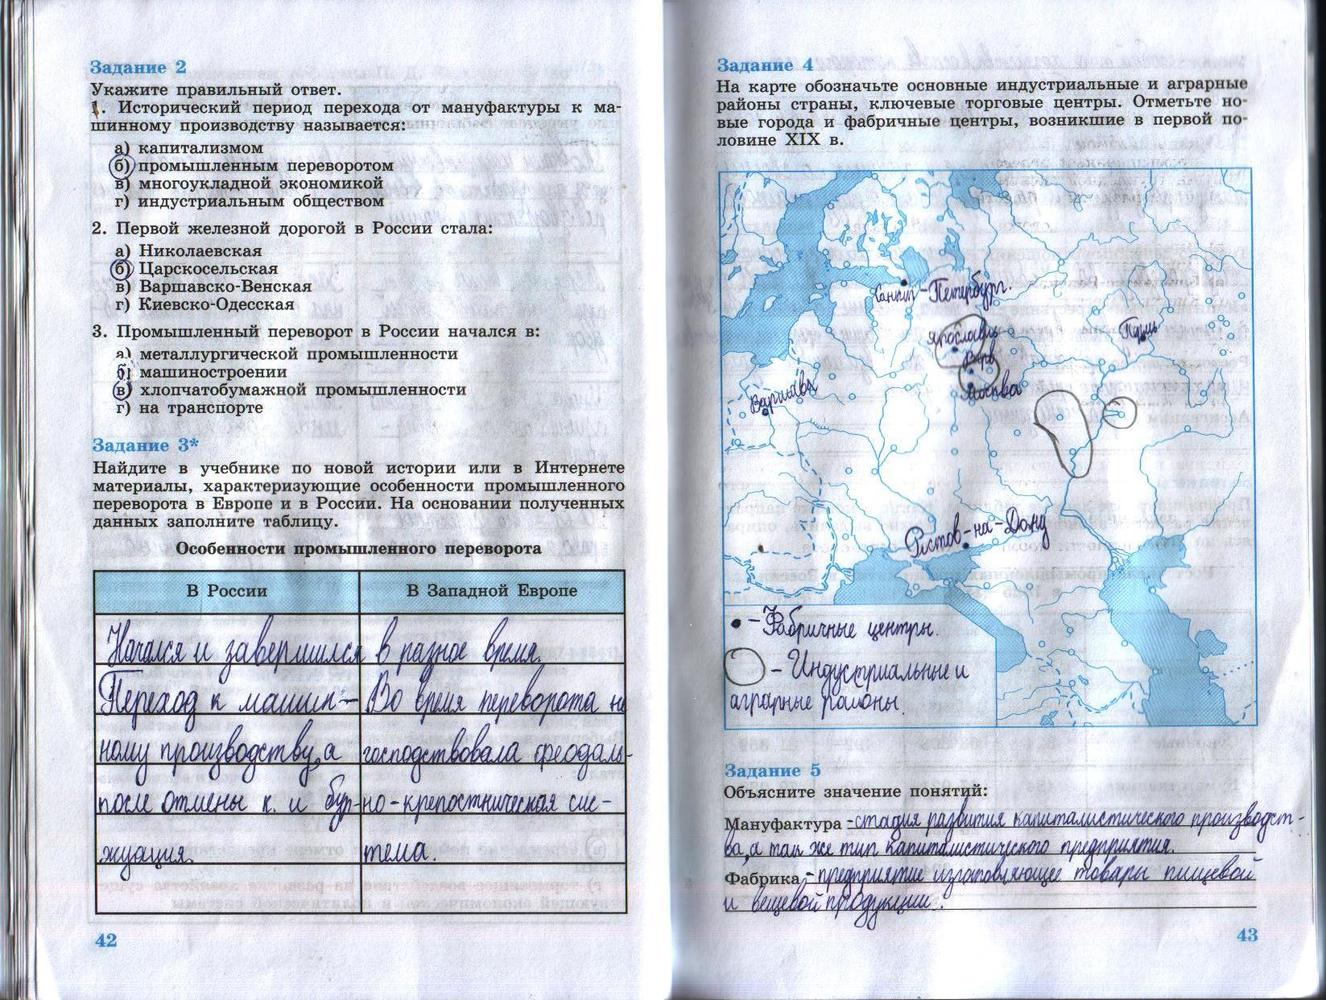 Задание 2
Укажите правильный ответ.
1. Исторический период перехода от мануфактуры к ма-
шинному производству называется:
а) капитализмом
б) промышленным переворотом
в) многоукладной экономикой
г) индустриальным обществом
2. Первой железной дорогой в России стала:
а) Николаевская
б) Царскосельская
в) Варшавско-Венская
г) Киевско-Одесская
3. Промышленный переворот в России начался в:
а) металлургической промышленности
б) машиностроении
в) хлопчатобумажной промышленности
г) на транспорте
Задание 3*
Найдите в учебнике по новой истории или в Интернете
материалы, характеризующие особенности промышленного
переворота в Европе и в России. На основании полученных
данных заполните таблицу.
Особенности промышленного переворота
В России
В Западной Европе
Начался и завершился в разное время.
Переход к машин-
ному производству, а
после отмены к. и бур-
жуация.
Во время переворота не
господствовала феодаль-
но-крепостническая сис-
тема.
42
Задание 4
На карте обозначьте основные индустриальные и аграрные
районы страны, ключевые торговые центры. Отметьте но-
вые города и фабричные центры, возникшие в первой по-
ловине XIX в.
Санкт-Петербург.
Ярославль
Пермь
Москва
Варшава
Ростов-на-Дону
• - Фабричные центры.
- Индустриальные и
аграрные районы.
Задание 5
Объясните значение понятий:
Мануфактура - стадия развития капиталистического производст-
ва, а так же тип капиталистического предприятия.
Фабрика - предприятие изготовляющее товары пищевой
и вещевой продукции.
43